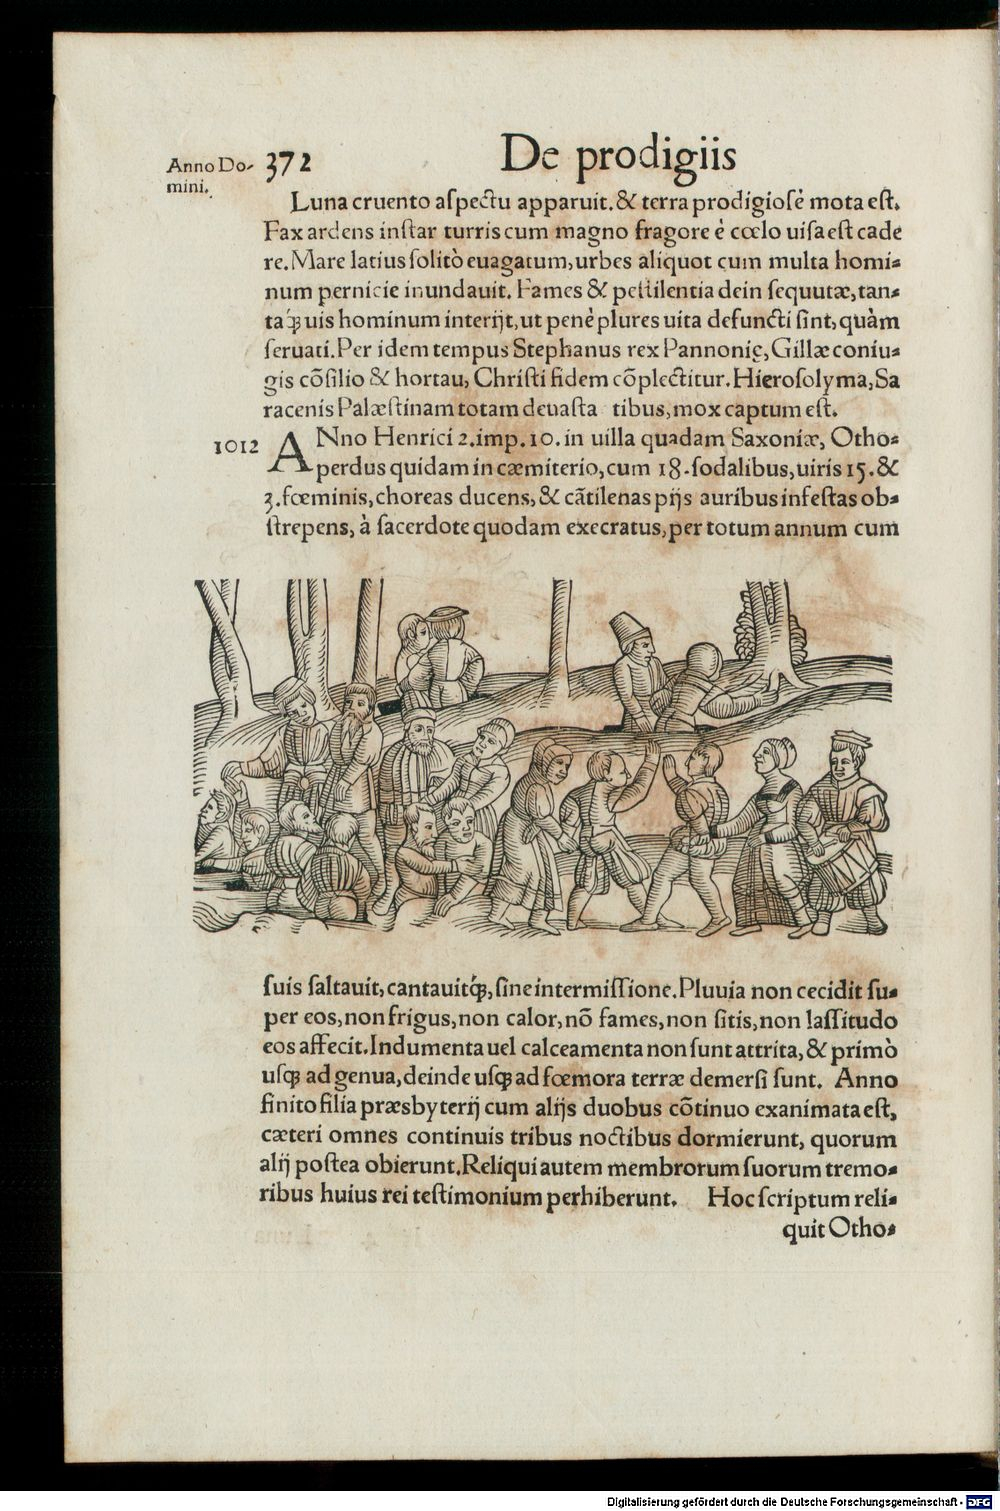 Anno Do-
mini.
372
De prodigiis
Luna cruento aſpectu apparuit. & terra prodigioſè mota eſt.
Fax ardens inſtar turris cum magno fragore è cœlo uiſa eſt cade
re. Mare latius ſolitò euagatum, urbes aliquot cum multa homi-
num pernicie inundauit. Fames & peſtilentia dein ſequutæ, tan-
taꝗ́ uis hominum interijt, ut penè plures uita defuncti ſint, quàm
ſeruati. Per idem tempus Stephanus rex Pannonię, Gillæ coniu-
gis cõſilio & hortau, Chriſti fidem cõplectitur. Hieroſolyma, Sa
racenis Palæſtinam totam deuaſta tibus, mox captum eſt.
1012
ANno Henrici 2. imp. 10. in uilla quadam Saxoniæ, Otho-
perdus quidam in cæmiterio, cum 18. ſodalibus, uiris 15. &
3. fœminis, choreas ducens, & cãtilenas pijs auribus infeſtas ob-
ſtrepens, à ſacerdote quodam execratus, per totum annum cum
ſuis ſaltauit, cantauitꝗ́, ſine intermiſſione. Pluuia non cecidit ſu-
per eos, non frigus, non calor, nõ fames, non ſitis, non laſſitudo
eos affecit. Indumenta uel calceamenta non ſunt attrita, & primò
uſꝗ ad genua, deinde uſꝗ ad fœmora terræ demerſi ſunt. Anno
finito filia præsbyterij cum alijs duobus cõtinuo exanimata eſt,
cæteri omnes continuis tribus noctibus dormierunt, quorum
alij poſtea obierunt. Reliqui autem membrorum ſuorum tremo-
ribus huius rei teſtimonium perhiberunt. Hoc ſcriptum reli-
quit Otho-
Digitalisierung gefördert durch die Deutsche Forschungsgemeinschaft - DFG